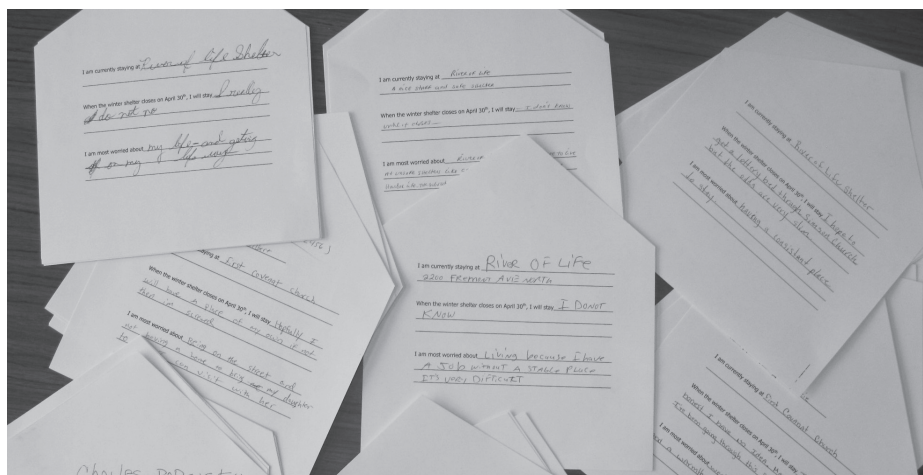 I am currently staying at River of life Shelter
When the winter shelter closes on April 30th, I will stay I really
do not no
I am most worried about my life and geting
on my life
I am currently staying at River of Life
a nice staff and safe shelter
When the winter shelter closes on April 30th, I will stay I don't know
I am most worried about
I am currently staying at River of Life Shelter
When the winter shelter closes on April 30th, I will stay I hope to
get a lottery bed through Simpson Church
but the odds are very slim
I am most worried about having a consistant place
to stay
staying at First Covenant church
When the winter shelter closes on April 30th, I will stay Hopfully I
will have a place of my own if not
then im screwed
I am most worried about Being on the street and
not having a home to bring my daughter
visit with her
I am currently staying at RIVER OF LIFE
2200 FREMONT AVE NORTH
When the winter shelter closes on April 30th, I will stay I DO NOT
KNOW
I am most worried about Living because I have
A JOB WITHOUT A STABLE PLACE
ITS VERY DIFFICUT
I am currently staying at First Covenant Church
When the winter shelter closes on April 30th, I will stay
I've been going through this
I am most worried about
Charles